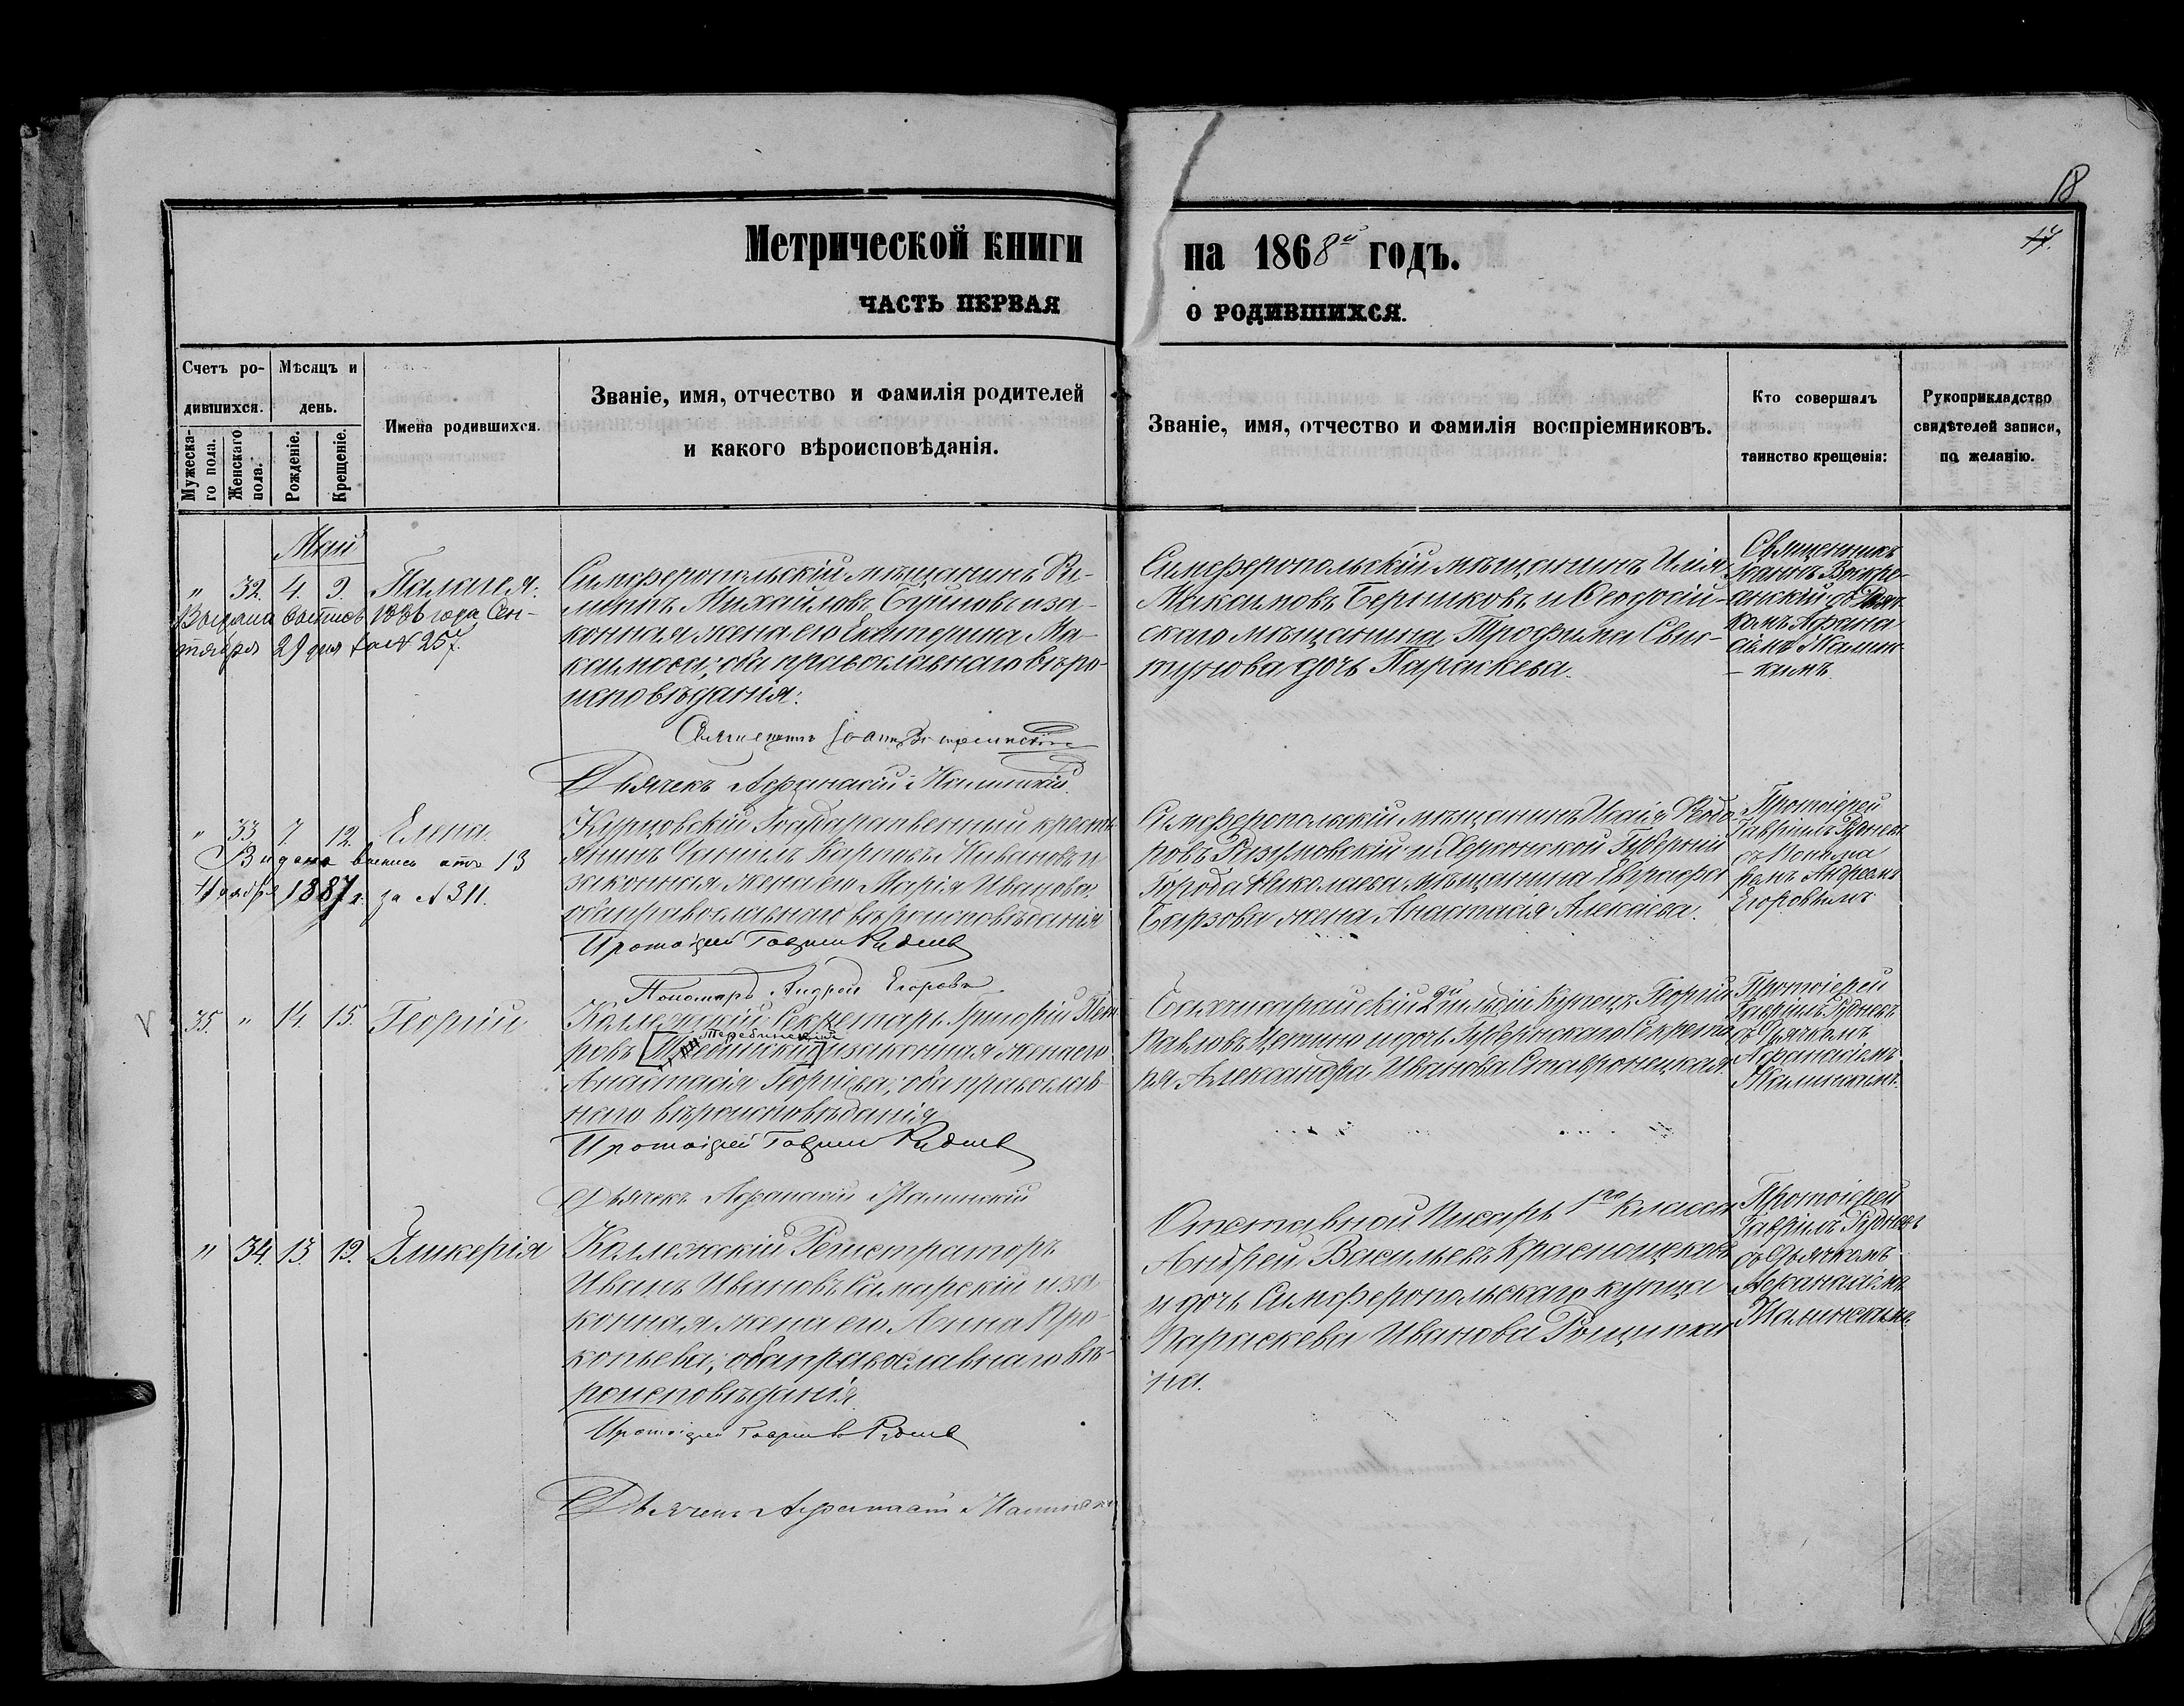 18
17.
Метрической книги на 1868й годъ.
ЧАСТЬ ПЕРВАЯ О РОДИВШИХСЯ.
Счетъ ро-
дившихся.
Мужеска-
го пола.
Женскаго
пола.
Мѣсяцъ и
день.
Рожденіе.
Крещеніе.
Имена родившихся.
Званіе, имя, отчество и фамилія родителей
и какого вѣроисповѣданія.
Званіе, имя, отчество и фамилія воспріемниковъ.
Кто совершалъ
таинство крещенія:
Рукоприкладство
свидѣтелей записи,
по желанію.
Май
" 32. 4. 9. Палагея.
Выдана 1886 года Сен-
тября 29 дня за № 257.
Симферопольскій мѣщанинъ Фи-
липпъ Михайловъ и за-
конная жена его Екатерина Ма-
каимова; оба православнаго вѣро-
исповѣданія.
Священникъ Іоаннъ
Дьячекъ Афанасій
Симферопольскій мѣщанинъ Илія
Максимовъ Бершковъ и Ѳеодосій-
скаго мѣщанина Трофима Свис-
тунова дочь Параскева.
Священникъ
Іоаннъ Воскре-
сенскій съ Дьяч-
комъ Афана-
сіемъ
" 33. 7. 12. Елена.
Видана выпись отъ 13
Ноября 1887 г. за № 311.
Курцовскій Государственный кресть-
янинъ Карповъ и
законная жена его Марія Иванова,
оба православнаго вѣроисповѣданія
Протоіерей Гавріилъ Рудневъ
Пономарь Андрей Егоровъ
Симферопольскій мѣщанинъ Исаія Ѳеодо-
ровъ Разумовскій и Херсонской Губерніи
Города Николаева мѣщанина Евграфа
Барзова жена Анастасія Алексѣева.
Протоіерей
Гавріилъ Рудневъ
съ Понома-
ремъ Андреемъ
Егоровымъ
35. " 14. 15. Георгій
Коллежскій Секретарь Григорій Пет-
ровъ и законная жена его
Анастасія Георгіева; оба православ-
наго вѣроисповѣданія
Протоіерей Гавріилъ Рудневъ
Дьячекъ Афанасій
Бахчисарайскій 2й гильдіи Купецъ Георгій
Павловъ и дочь Губернскаго Секрета-
ря Александра Иванова Ставронецкая
Протоіерей
Гавріилъ Рудневъ
съ Дьячкомъ
Афанасіемъ
" 34. 13. 19. Гликерія
Коллежскій Регистраторъ
Иванъ Ивановъ Самарскій и за-
конная жена его Анна Про-
копьева; оба православнаго вѣ-
роисповѣданія.
Протоіерей Гавріилъ Рудневъ
Дьячекъ Афанасій
Отставной Писарь 1го класса
Андрей Васильевъ Краснощековъ
и дочь Симферопольскаго купца
Параскева Иванова
на.
Протоіерей
Гавріилъ Рудневъ
съ Дьячкомъ
Афанасіемъ